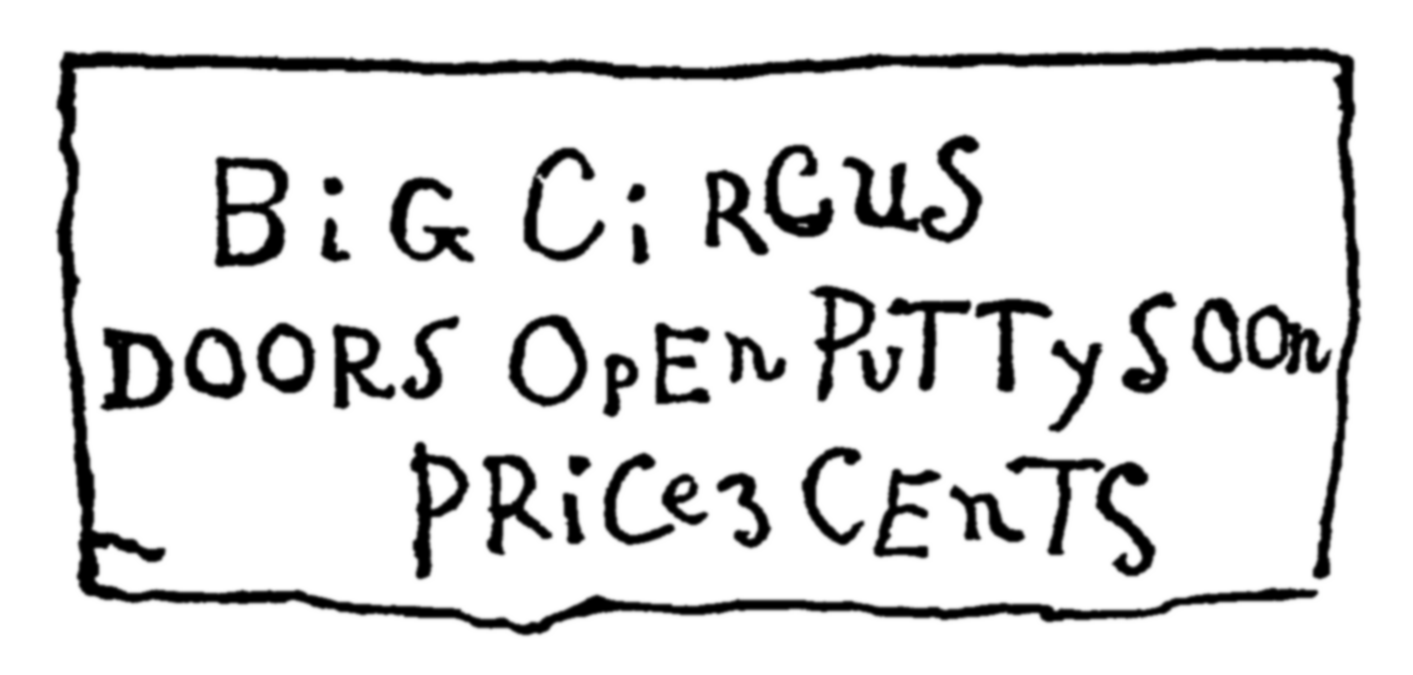 BiG CiRCUS
DOORS OpEn PuTTy SOOn
PRiCe 3 CEnTS